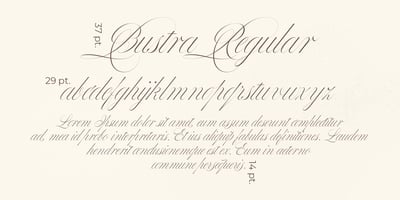 37 pt.
Bustra Regular
29 pt.
abcdefghijklmnopqrstuvwxyz
Lorem Ipsum dolor sit amet, eum assum discerunt complectitur
ad, mea id probo interpretaris. Et ius aliquip fabulas definitiones. Laudem
hendrerit conclusionemque est ex. Eum in aeterno
commune persequeris.
14 pt.